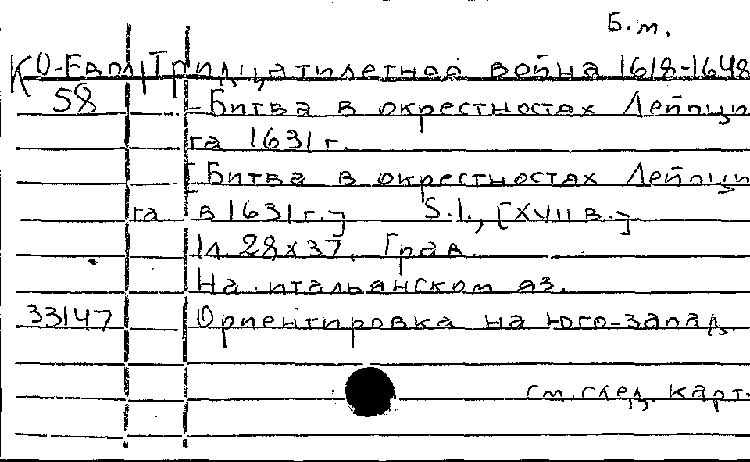 Б.м.
КО-Евр/ Тридцатилетняя война 1618-1648
58 -Битва в окрестностях Лейпци
га 1631 г.
[Битва в окрестностях Лейпци
га в 1631 г.] S.l., [XVII в.]
1л. 28х37. Грав.
На итальянском яз.
33147 Ориентировка на юго-запад
см. след. карт.